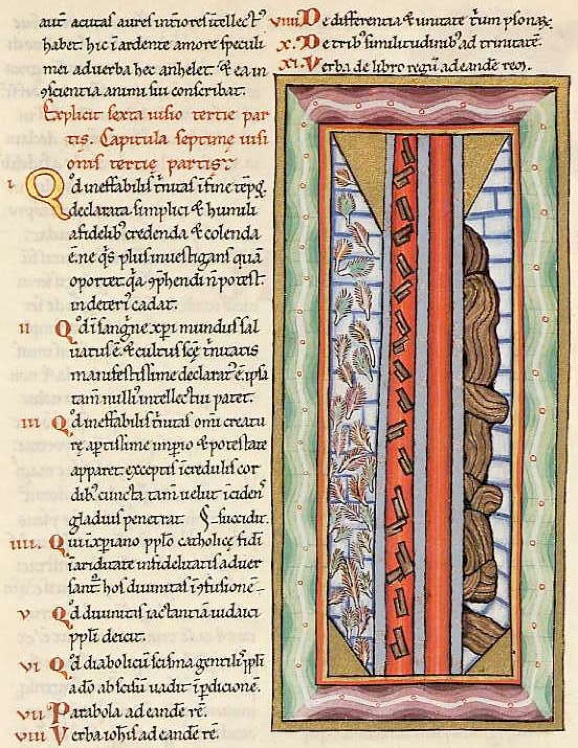 aut̄ acutas aures int̾iores ītellectꝰ
habet. hic ī ardente amore speculi
mei ad verba hec anhelet. ⁊ ea in
ꝯscientia animi sui conscribat.
Explicit sexta uisio tertie par
tis. Capitula septime uisi
onis tertie partis;
I Qd̕ ineffabilis t̾nitas ī fine tēpoꝝ
declarata simplici ⁊ humili
a fidelibꝰ credenda ⁊ colenda
ē. ne q̕s plus inuestigans quā
oportet. q̕a ꝯp̾hendi n̄ potest.
in deteriꝰ cadat.
II Qd̕ ī sang̾ne xp̄i mundus sal
uatus ē. ⁊ cultus sc̄ę t̾nitatis
manifestissime declarat̕ ē. ipsa
tam̄ nulliꝰ intellectui patet.
III Qd̕ ineffabilis t̾nitas om̄i creatu
rę aptissime inp̾io ⁊ potestate
apparet. exceptis īcredulis cor
dibꝰ. cuncta tam̄ uelut īcidens
gladius penetrat. succidit.
IIII. Qui ī xp̄iano pp̄lo catholicę fidi
ī ariditate infidelitatis aduer
sant̕. hos diuinitas ī ꝯfusionē
V Qd̕ diuinitas iactantiā iudaici
pp̄li deicit.
VI Qd̕ diabolicū scisma gentilis pp̄li
a dō abscisum uadit ī p̾dicionē.
VII Parabola ad eandē rē.
VIII Verba ioh̄is ad eandē rē.
VIIII De differentia ⁊ unitate t̾um p̾sonaꝝ.
X. De tribꝰ similitudinibꝰ ad trinitatē.
XI. Verba de libro regū ad eandē rem.